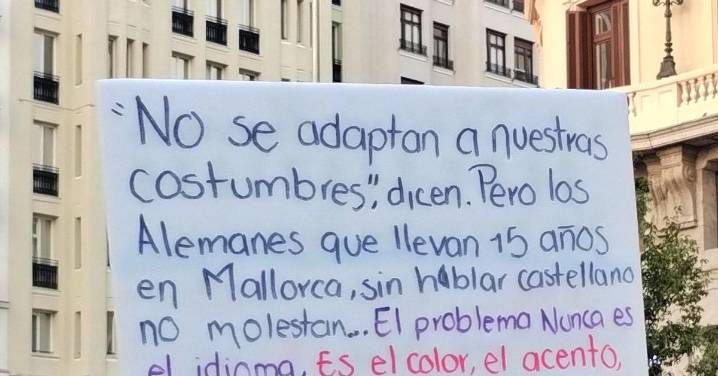 "No se adaptan a nuestras
costumbres", dicen. Pero los
Alemanes que llevan 15 años
en Mallorca, sin hablar castellano
no molestan... El problema Nunca es
el idioma. Es el color, el acento,